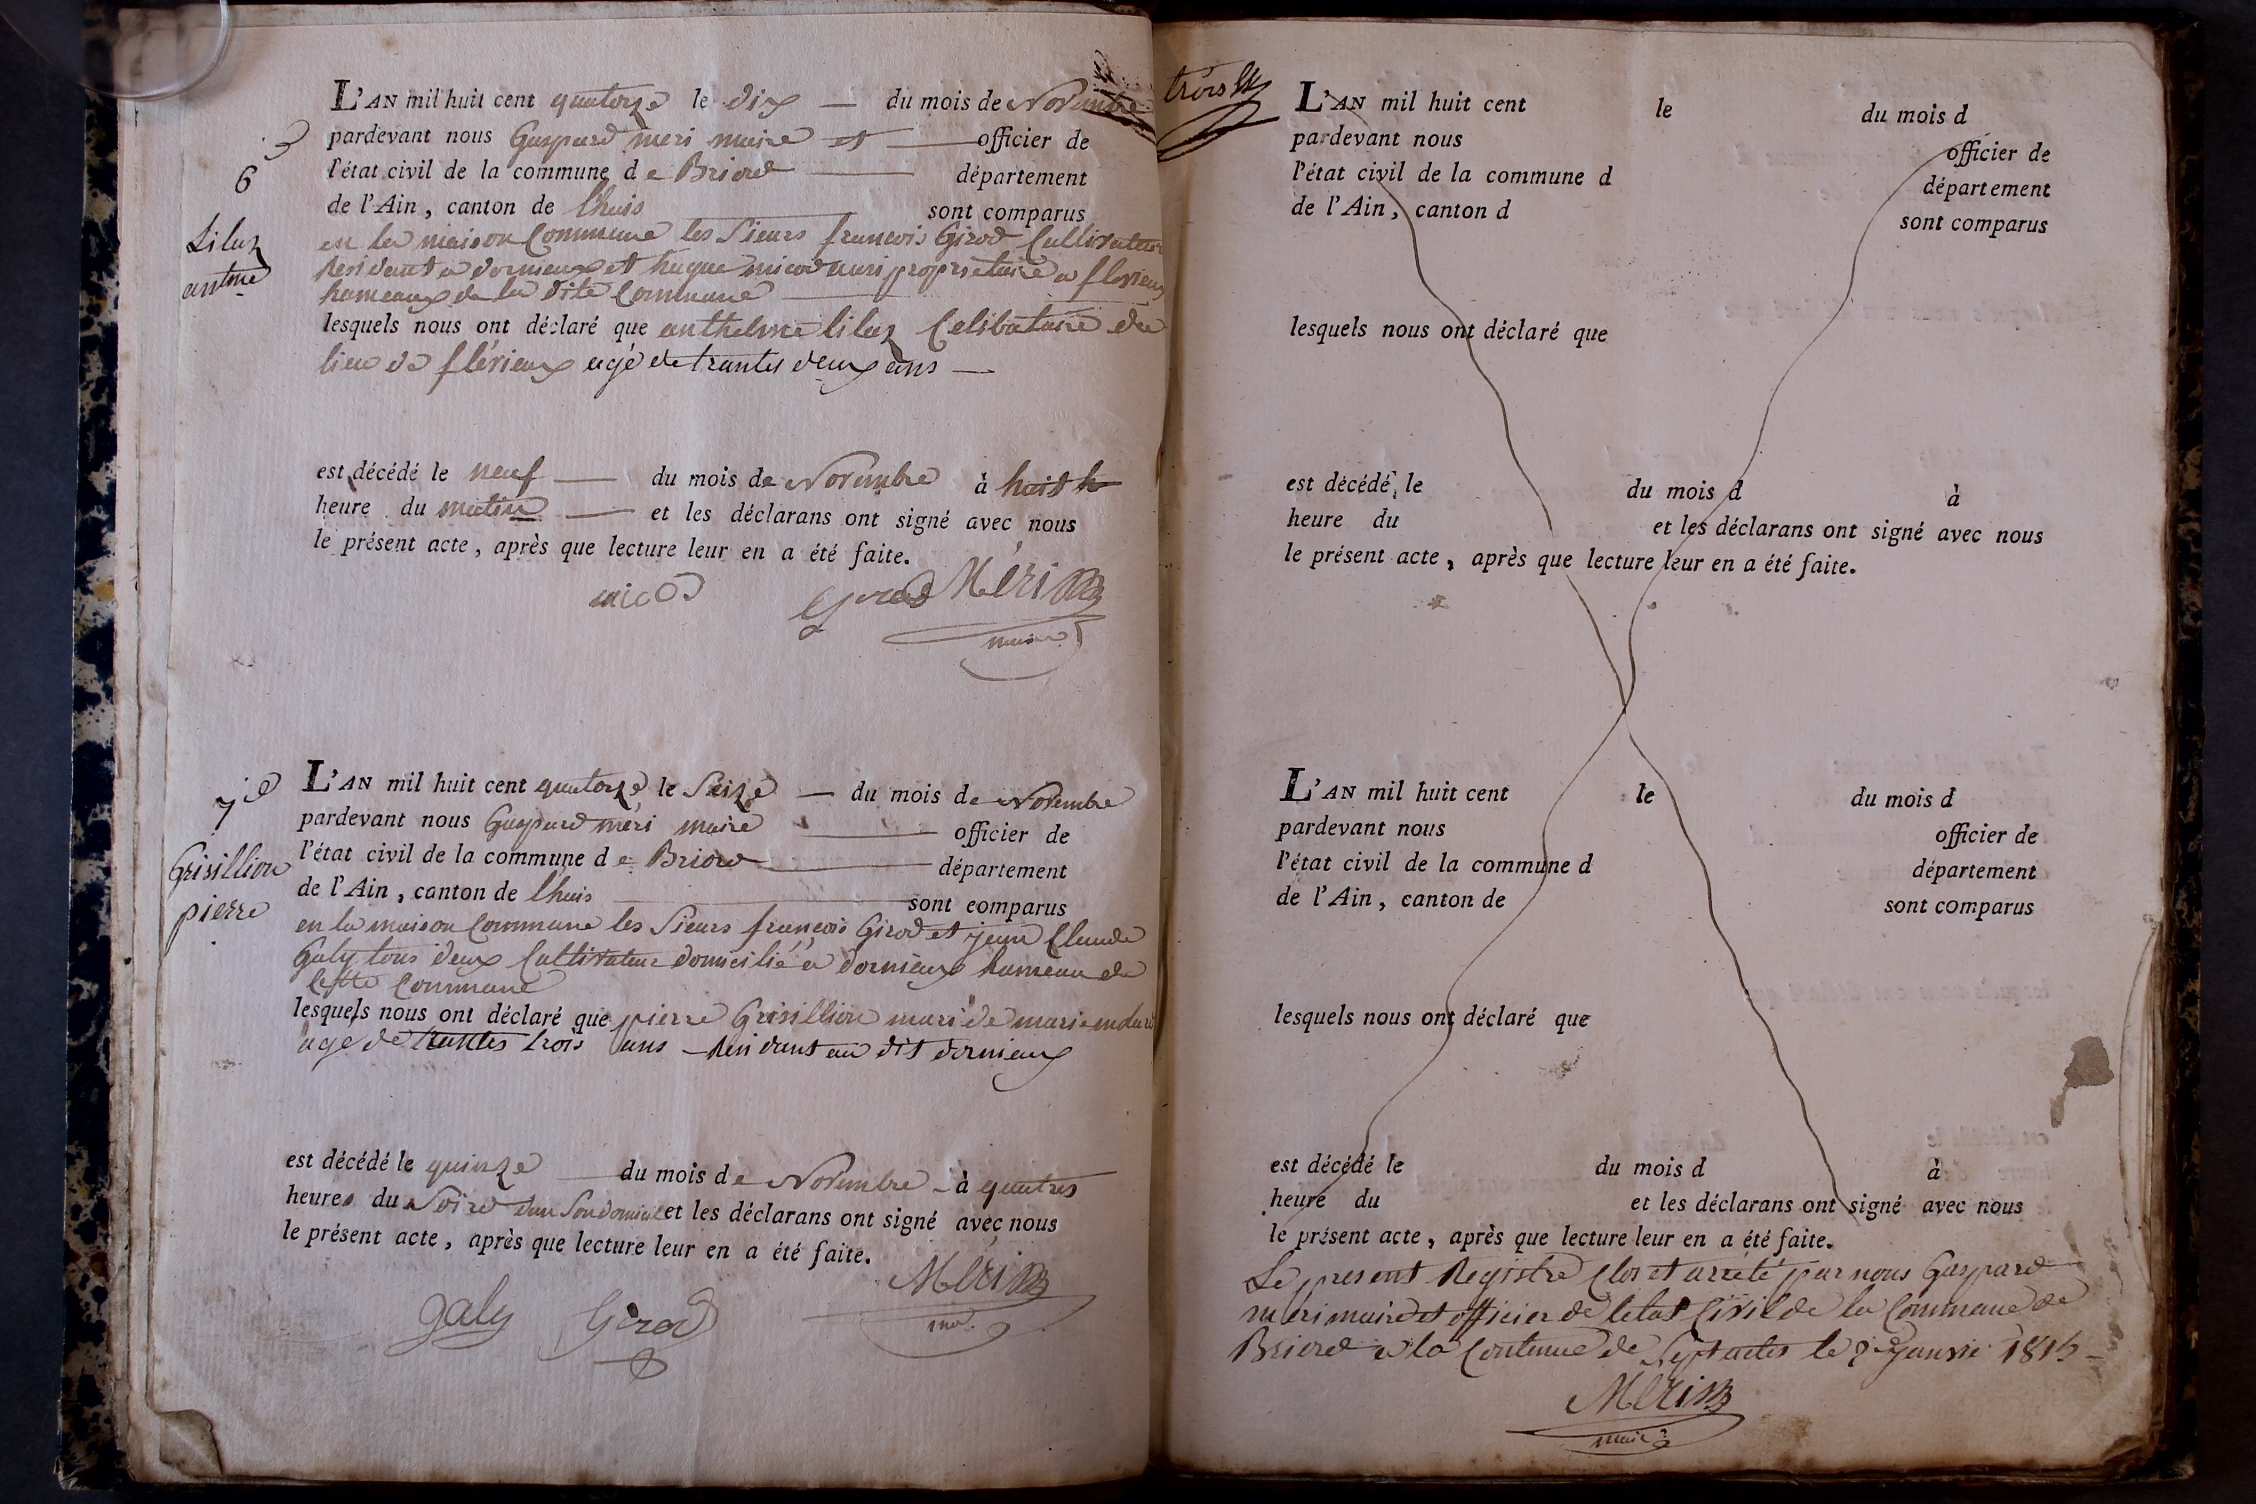 L'AN mil huit cent quatorze le dix du mois de Novembre
pardevant nous Gaspard meri maire et officier de
l'état civil de la commune de Briord département
de l'Ain, canton de lhuis sont comparus
en la maison Commune les Sieurs francois Girod Cultivateur
Residant a dornieux et hugue micod propriétaire a flerieux
hameaux de la dite Commune
lesquels nous ont déclaré que anthelme lilaz Celibataire du
lieu de flérieux agé de trantes deux ans
6
Lilaz
antme
est décédé le neuf du mois de Novembre à huit h
heure du matin et les déclarans ont signé avec nous
le présent acte, après que lecture leur en a été faite.
micod Girod Méri
maire
7e
Grisillion
pierre
L'AN mil huit cent quatorze le Seize du mois de Novembre
pardevant nous Gaspard méri maire officier de
l'état civil de la commune de Briord département
de l'Ain, canton de lhuis sont comparus
en la maison Commune les Sieurs françois Girod et jean Claude
Galy tous deux Cultivateur domicilié a dornieux hameau de
Cette Commune
lesquels nous ont déclaré que pierre Grisillion mari de marie
agé de trantes trois ans Residant au dit dornieux
est décédé le quinze du mois de Novembre à quatres
heures du Soire dans Son domicile et les déclarans ont signé avec nous
le présent acte, après que lecture leur en a été faite.
Galy Girod Méri
trois
L'AN mil huit cent le du mois d
pardevant nous officier de
l'état civil de la commune d département
de l'Ain, canton d sont comparus
lesquels nous ont déclaré que
est décédé le du mois d à
heure du et les déclarans ont signé avec nous
le présent acte, après que lecture leur en a été faite.
L'AN mil huit cent le du mois d
pardevant nous officier de
l'état civil de la commune d département
de l'Ain, canton de sont comparus
lesquels nous ont déclaré que
est décédé le du mois d à
heure du et les déclarans ont signé avec nous
le présent acte, après que lecture leur en a été faite.
Le present Registre Clos et arreté par nous Gaspard
méri maire et officier de letat Civil de la Commune de
Briord a la Contenue de Sept actes le janvie 1815
Méri
maire